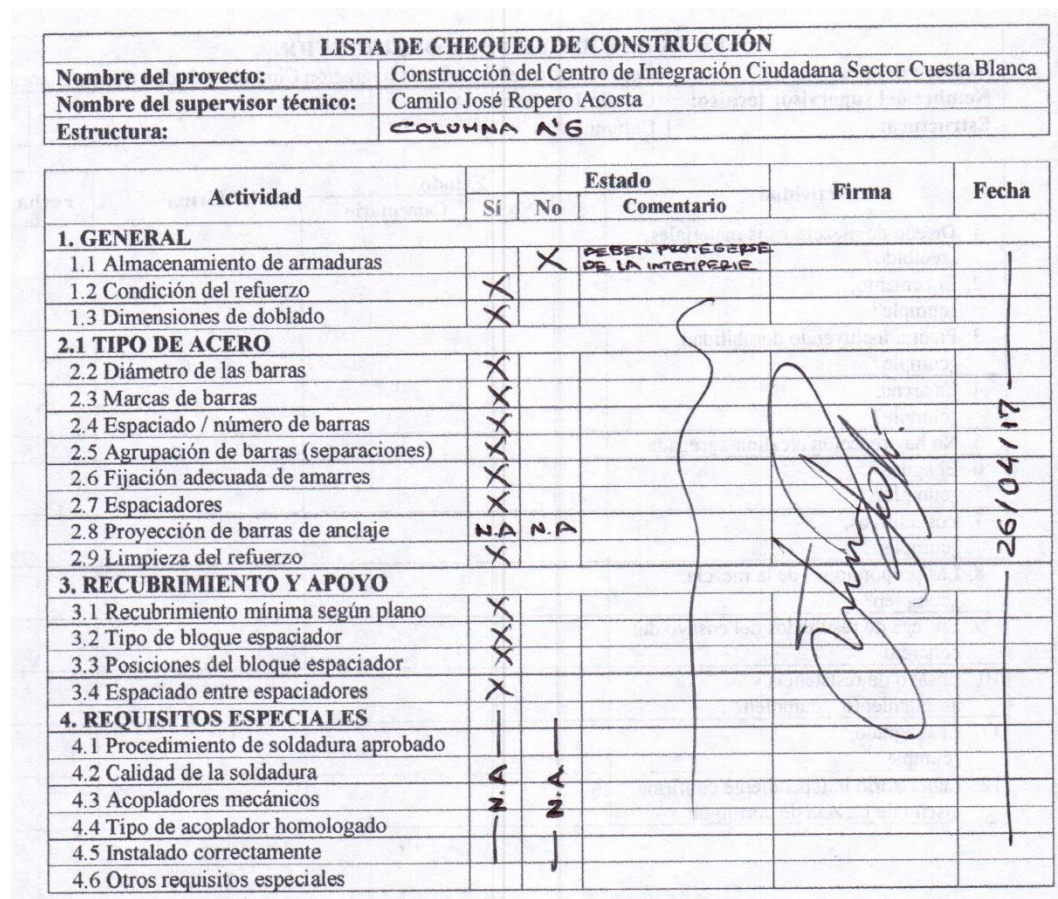 LISTA DE CHEQUEO DE CONSTRUCCIÓN
Nombre del proyecto: Construcción del Centro de Integración Ciudadana Sector Cuesta Blanca
Nombre del supervisor técnico: Camilo José Ropero Acosta
Estructura: COLUMNA N°6
Actividad Estado Firma Fecha
Sí No Comentario
1. GENERAL
1.1 Almacenamiento de armaduras X DEBEN PROTEGERSE
DE LA INTERPERIE
1.2 Condición del refuerzo X
1.3 Dimensiones de doblado X
2.1 TIPO DE ACERO
2.2 Diámetro de las barras X
2.3 Marcas de barras X
2.4 Espaciado / número de barras X
2.5 Agrupación de barras (separaciones) X
2.6 Fijación adecuada de amarres X
2.7 Espaciadores X
2.8 Proyección de barras de anclaje N.A N.A
2.9 Limpieza del refuerzo X
3. RECUBRIMIENTO Y APOYO
3.1 Recubrimiento mínima según plano X
3.2 Tipo de bloque espaciador X
3.3 Posiciones del bloque espaciador X
3.4 Espaciado entre espaciadores X
4. REQUISITOS ESPECIALES
4.1 Procedimiento de soldadura aprobado
4.2 Calidad de la soldadura
4.3 Acopladores mecánicos
4.4 Tipo de acoplador homologado
4.5 Instalado correctamente
4.6 Otros requisitos especiales
N.A
N.A
26/04/17